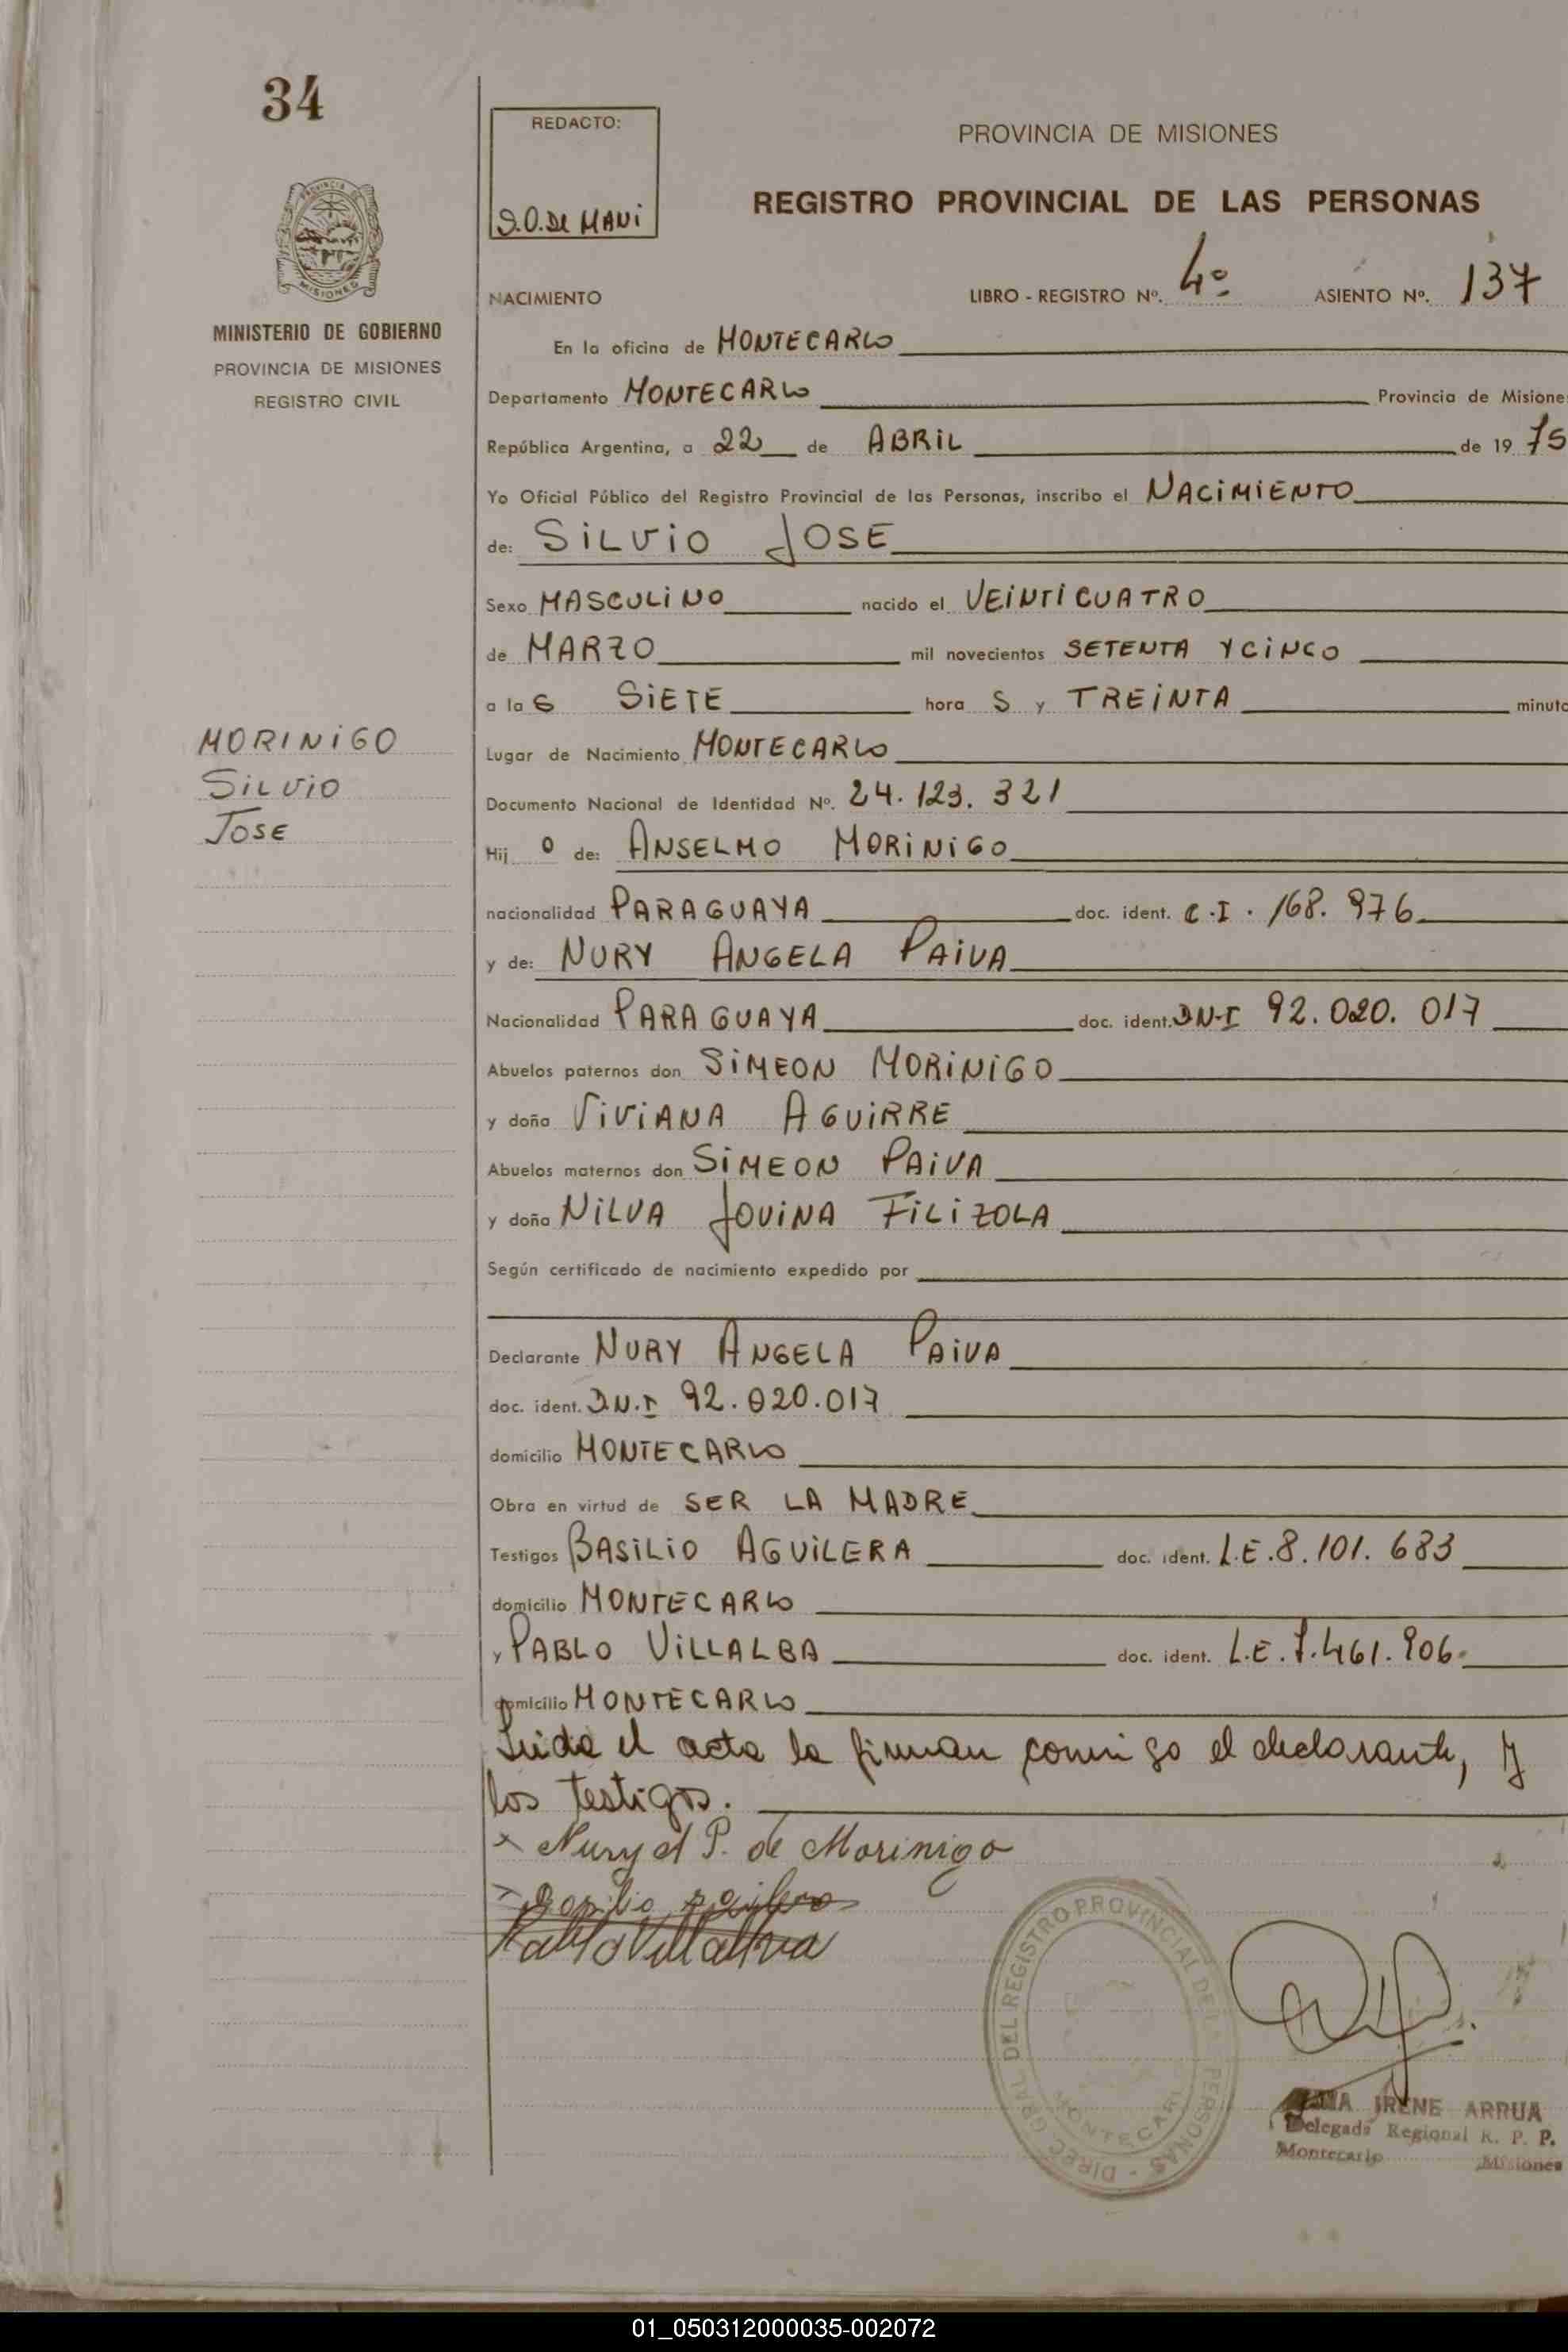 34
REDACTO:
S.O. DE MAUI
PROVINCIA DE MISIONES
REGISTRO PROVINCIAL DE LAS PERSONAS
PROVINCIA DE MISIONES
MINISTERIO DE GOBIERNO
PROVINCIA DE MISIONES
REGISTRO CIVIL
NACIMIENTO LIBRO - REGISTRO Nº. 4º ASIENTO Nº. 137
En la oficina de MONTECARLO
Departamento MONTECARLO Provincia de Misione
República Argentina, a 22 de ABRIL de 19 75
Yo Oficial Público del Registro Provincial de las Personas, inscribo el NACIMIENTO
de: SILVIO JOSE
Sexo MASCULINO nacido el VEINTICUATRO
de MARZO mil novecientos SETENTA Y CINCO
a la S SIETE hora S y TREINTA minuto
MORINIGO
SILVIO
JOSE
Lugar de Nacimiento MONTECARLO
Documento Nacional de Identidad Nº. 24.123.321
Hij O de: ANSELMO MORINIGO
nacionalidad PARAGUAYA doc. ident. C.I. 168.976
y de: NURY ANGELA PAIVA
Nacionalidad PARAGUAYA doc. ident. DN.I 92.020.017
Abuelos paternos don SIMEON MORINIGO
y doña VIVIANA AGUIRRE
Abuelos maternos don SIMEON PAIVA
y doña NILVA JOVINA FILIZOLA
Según certificado de nacimiento expedido por
Declarante NURY ANGELA PAIVA
doc. ident. D.N.I 92.020.017
domicilio MONTECARLO
Obra en virtud de SER LA MADRE
Testigos BASILIO AGUILERA doc. ident. L.E.8.101.683
domicilio MONTECARLO
y PABLO VILLALBA doc. ident. L.E.7.461.906
domicilio MONTECARLO
Leida el acta la firman conmigo el declarante, y
los testigos.
x Nury A P. de Morinigo
Basilio Aguilera
Pablo Villalba
DIREC. GRAL. DEL REGISTRO PROVINCIAL DE LAS PERSONAS
MONTECARLO
IRENE ARRUA
Delegada Regional R. P. P.
Montecarlo Misiones
01_050312000035-002072